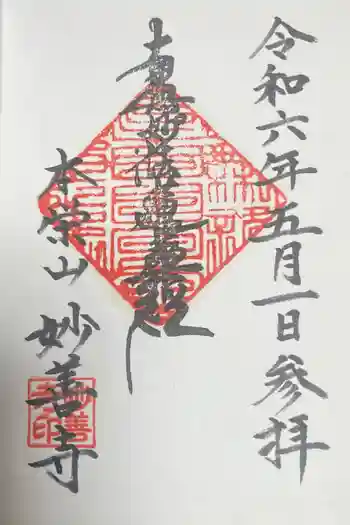 令和六年五月一日参拝
南無妙法蓮華経
本栄山 妙善寺